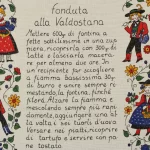 Fonduta
alla Valdostana
Mettere 600g di fontina a
fette sottilissime in una zup
piera, ricoprirla con 300g di
latte e lasciarla macera-
re per almeno due ore. In
un recipiente far sciogliere
a fiamma bassissima 30g
di burro e unire sempre ri-
mestando, la fontina, finchè
filerà. Alzare la fiamma e
mescolando sempre più rapi-
damente, aggiungere una al-
la volta i sei tuorli d'uovo
Versare nei piatti, ricoprire
di tartufo e servire con pa-
ne tostato